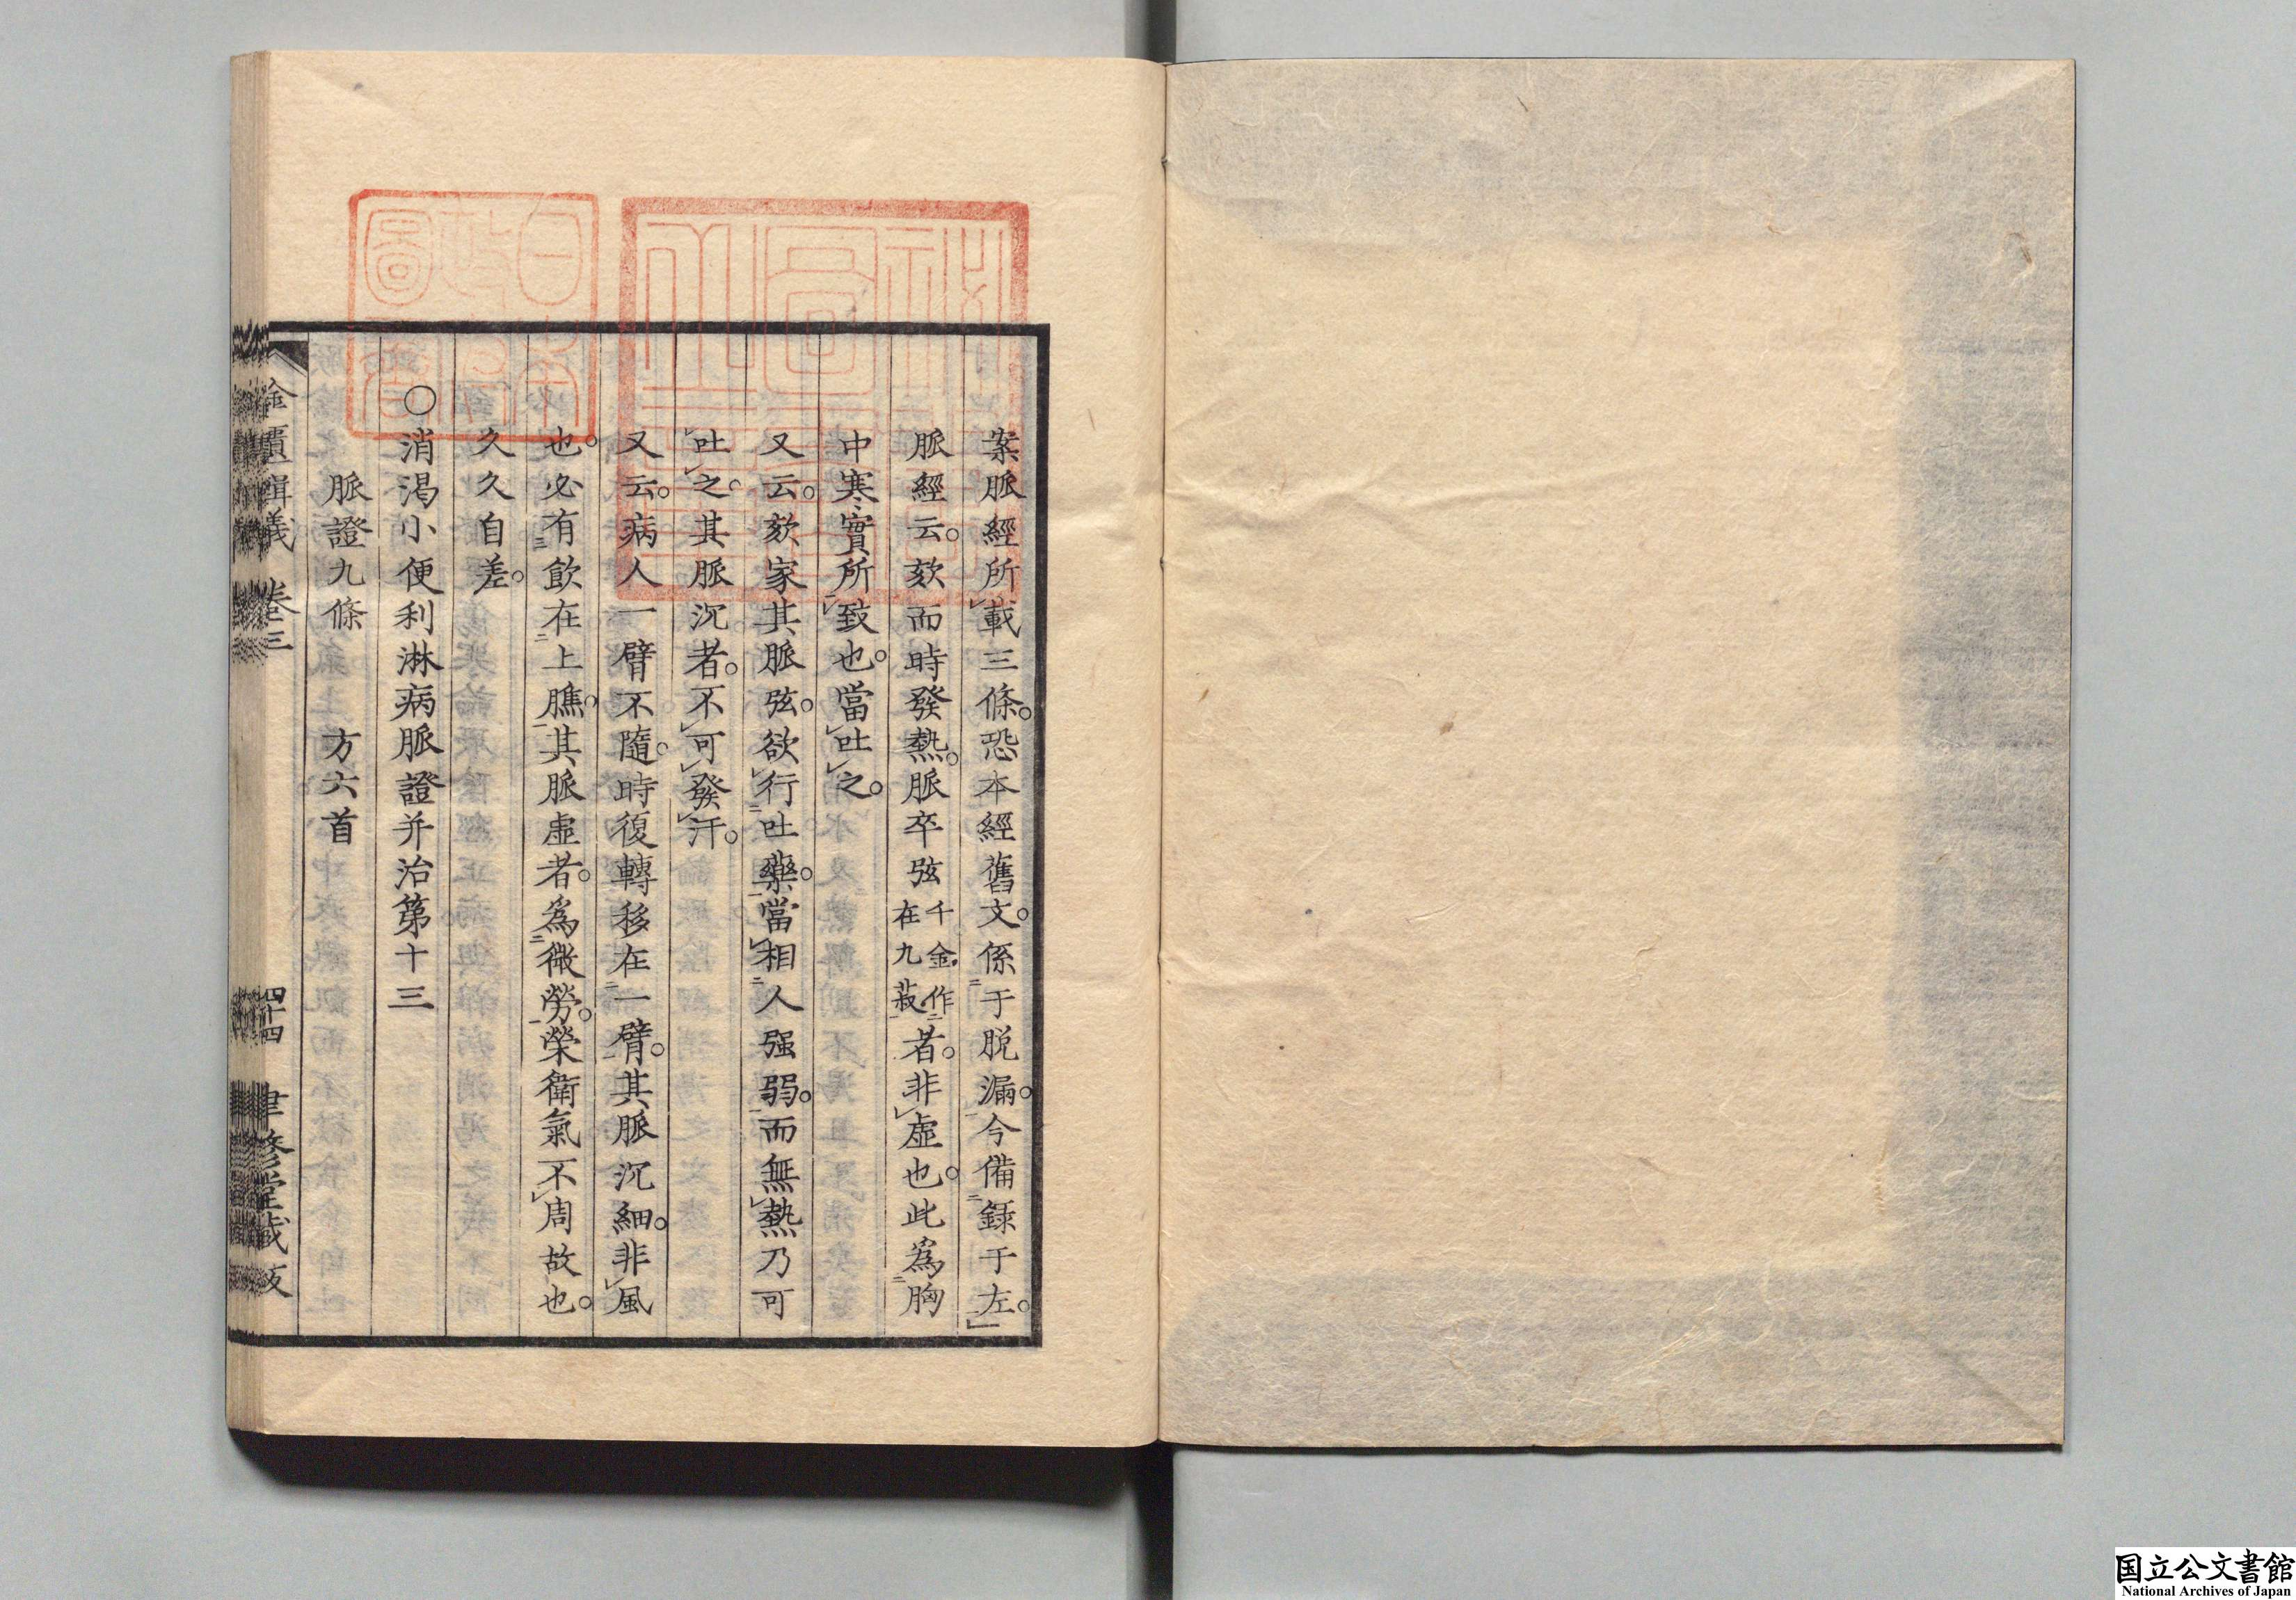 案脈經所載三條。恐本經舊文。係于脱漏。今備録于左。
脈經云。欬而時發熱。脈卒弦千金作在九菽者。非虛也。此爲胸
中寒實所致也。當吐之。
又云。欬家其脈弦。欲行吐藥。當相人强弱。而無熱乃可
吐之。其脈沉者。不可發汗。
又云。病人一臂不隨。時復轉移在一臂。其脈沉細。非風
也。必有飲在上膲。其脈虛者。爲微勞。榮衛氣不周故也。
久久自差。
〇消渴小便利淋病脈證并治第十三
脈證九條　方六首
金匱輯義　卷三　四十四　聿修堂藏版
国立公文書館
National Archives of Japan